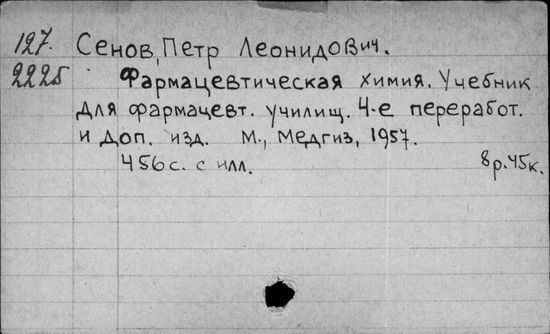 127. Сенов, Петр Леонидович.
2225 Фармацевтическая химия. Учебник
для фармацевт. училищ. 4-е переработ.
и доп. изд. М., Медгиз, 1957.
456 с. с илл. 8 р. 45 к.